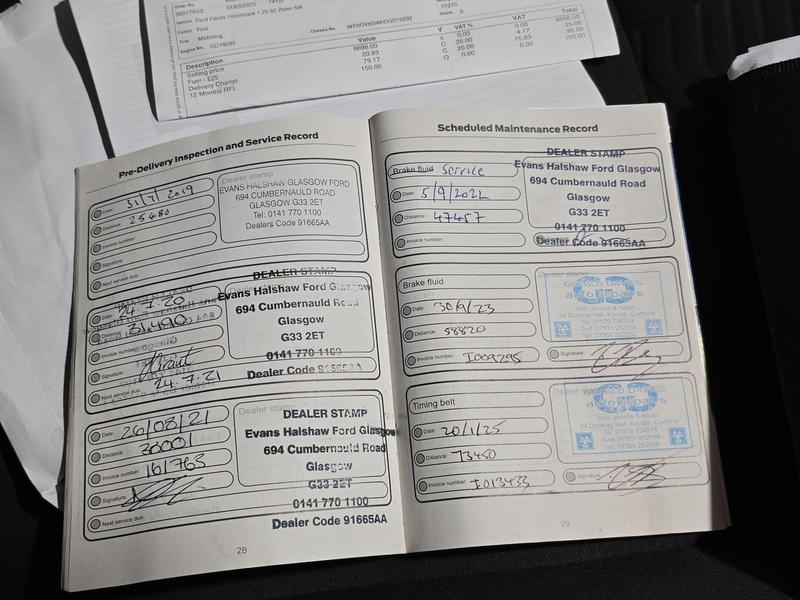 31/03/2023
Vehicle Ford Fiesta Hatchback 1.25 82 Zetec 5dr
Colour
Ford
Chassis No.
Trim
Matching
Engine No.
Description
Value
V
VAT %
VAT
Total
Selling price
8698.00
0.00
0.00
8698.00
Fuel - £25
20.83
20.00
4.17
25.00
Delivery Charge
79.17
20.00
15.83
95.00
12 Months RFL
150.00
0.00
150.00
Pre-Delivery Inspection and Service Record
Date: 31/7/2019
Distance: 25480
Invoice number:
Signature:
Next service due:
Dealer stamp
EVANS HALSHAW GLASGOW FORD
694 CUMBERNAULD ROAD
GLASGOW G33 2ET
Tel: 0141 770 1100
Dealers Code 91665AA
Date: 24.7.20
Distance: 31,490
Invoice number:
Signature:
Next service due: 24.7.21
DEALER STAMP
Evans Halshaw Ford Glasgow
694 Cumbernauld Road
Glasgow
G33 2ET
0141 770 1100
Dealer Code 91665AA
Date: 26/08/21
Distance: 36001
Invoice number: 161763
Signature:
Next service due:
Dealer stamp
DEALER STAMP
Evans Halshaw Ford Glasgow
694 Cumbernauld Road
Glasgow
G33 2ET
0141 770 1100
Dealer Code 91665AA
28
Scheduled Maintenance Record
Brake fluid Service
Date: 5/9/2022
Distance: 47457
Invoice number:
DEALER STAMP
Evans Halshaw Ford Glasgow
694 Cumbernauld Road
Glasgow
G33 2ET
0141 770 1100
Dealer Code 91665AA
Brake fluid
Date: 30/9/23
Distance: 58820
Invoice number: I009295
Dealer stamp
auto repairs
mot, service & repair
24 Dockray Hall, Kendal, Cumbria
Tel: 01539 734274
Signature:
Timing belt
Date: 20/1/25
Distance: 73450
Invoice number: I013433
Dealer stamp
auto repairs
mot, service & repair
24 Dockray Hall, Kendal, Cumbria
Tel: 01539 734274
Signature:
29